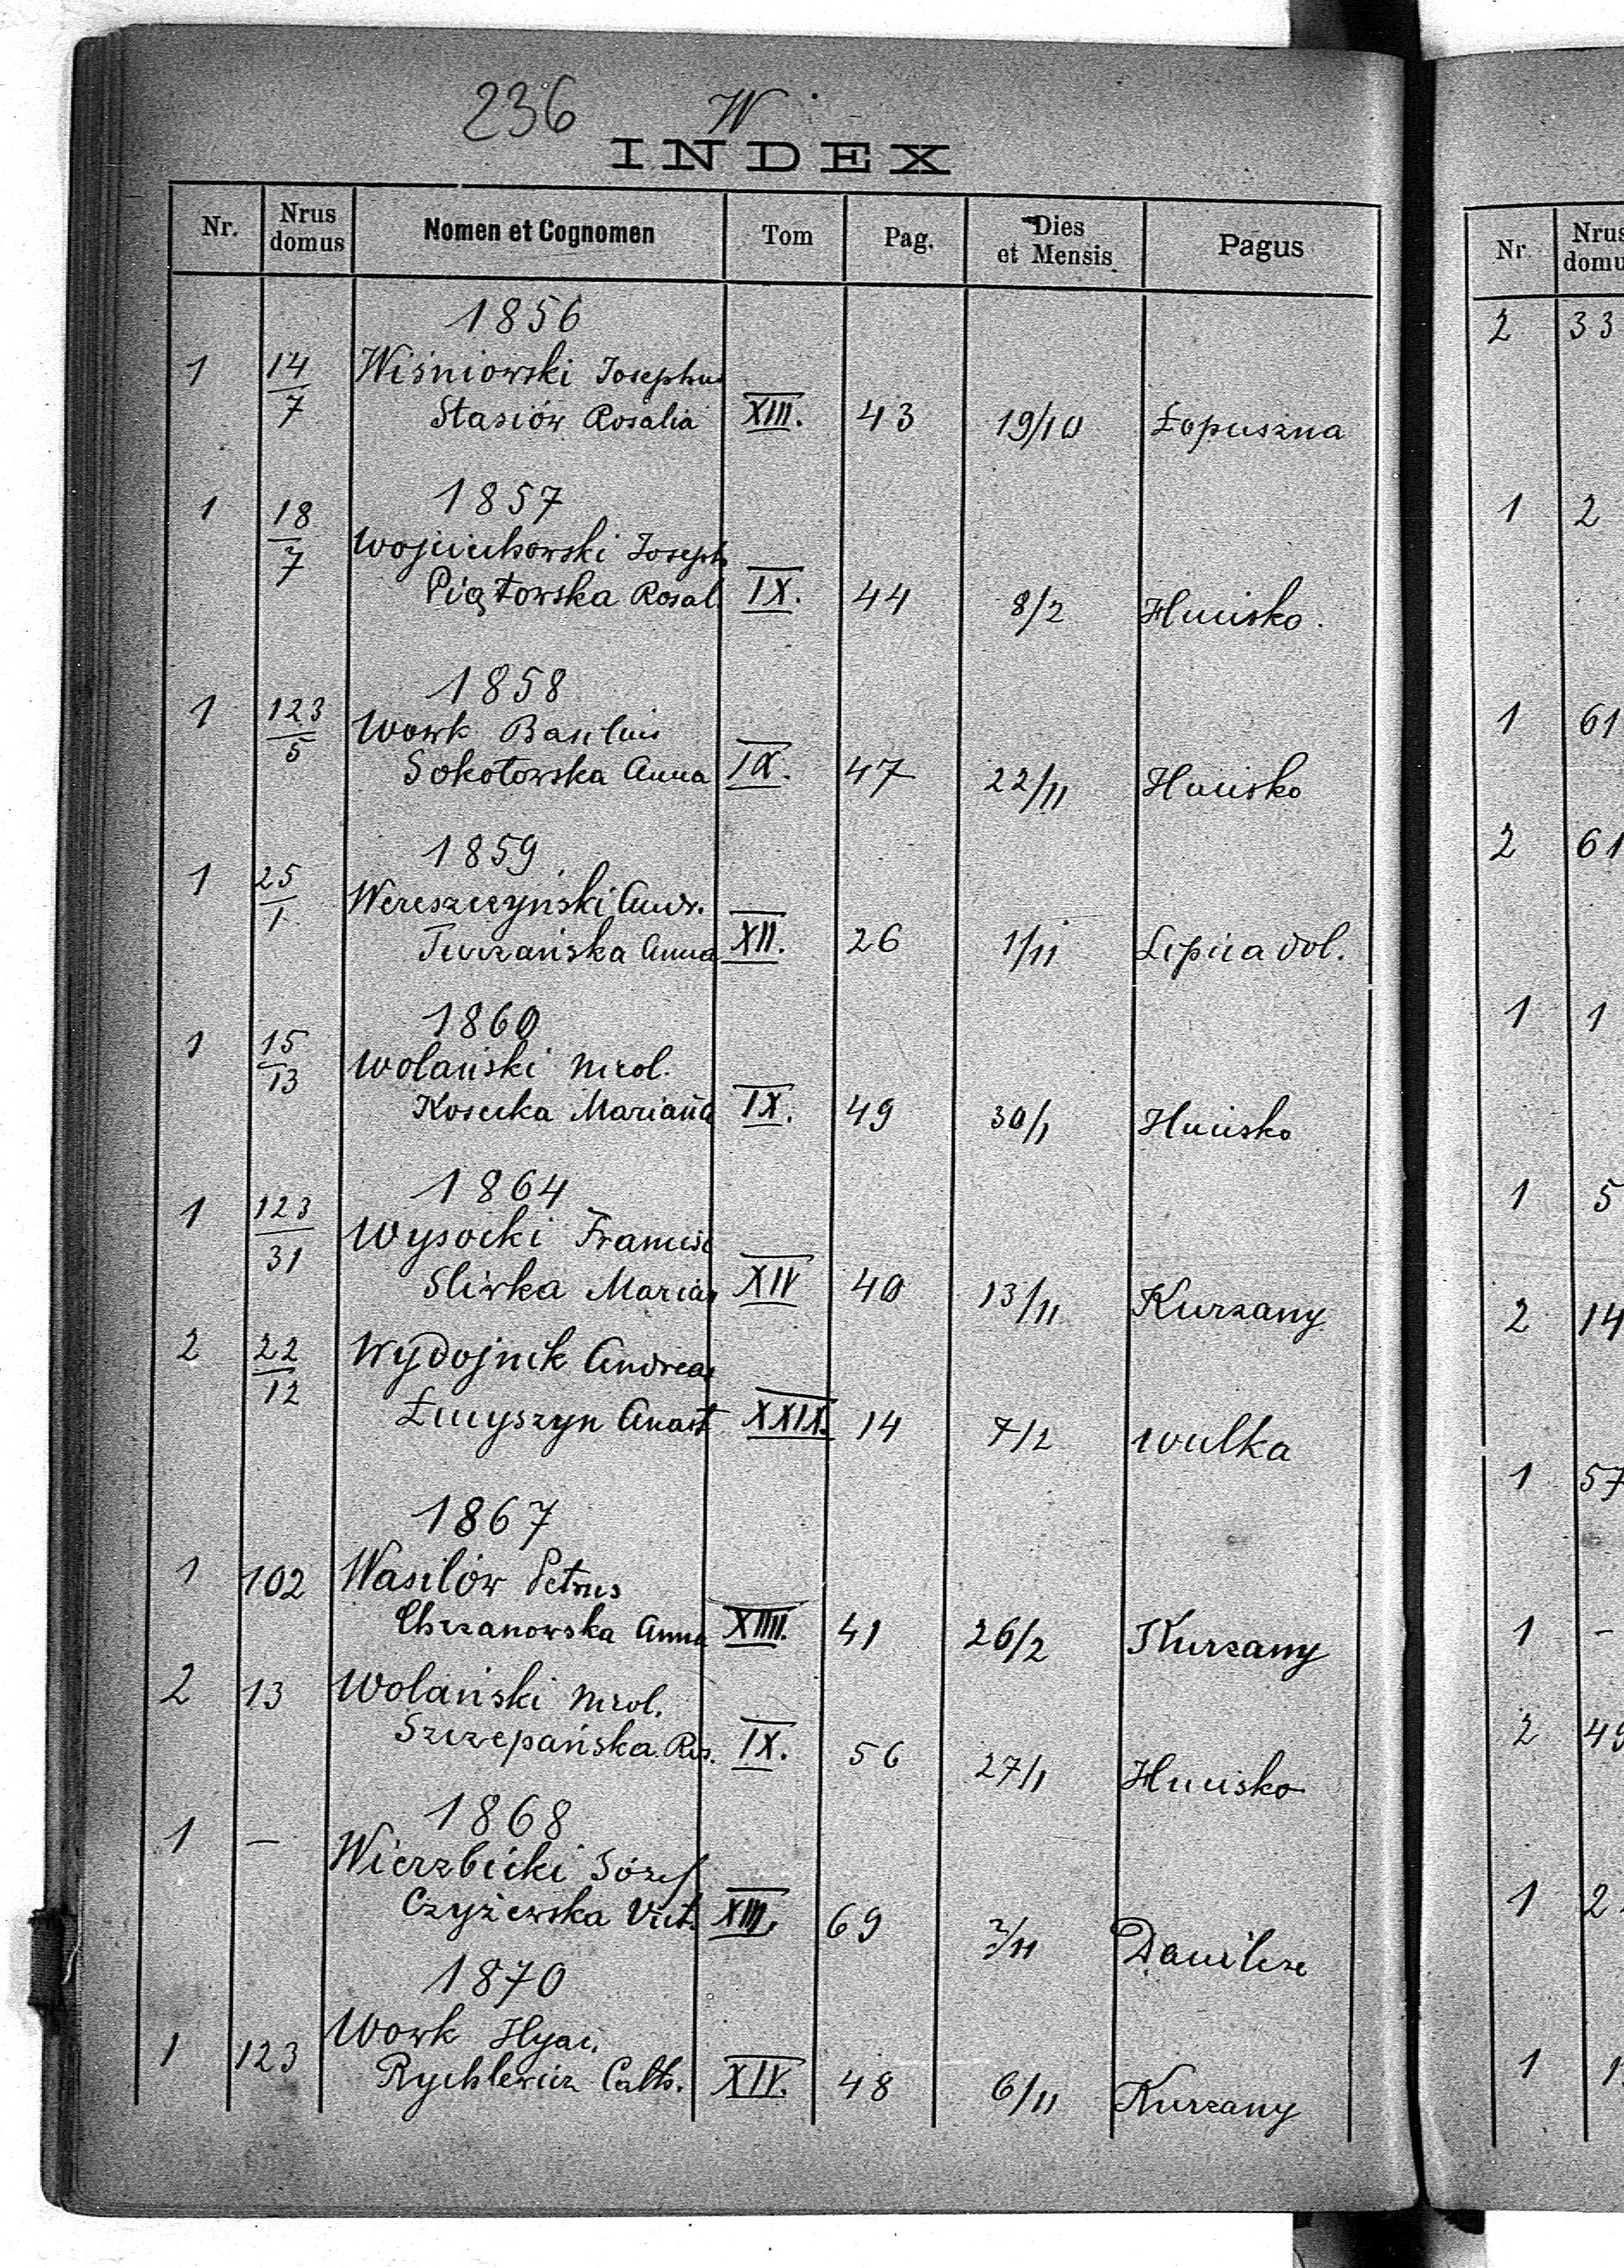 236 W
INDEX
Nr. Nrus domus Nomen et Cognomen Tom Pag. Dies et Mensis Pagus
1856
1 14/7 Wiśniowski Josephus
Stasiów Rosalia XIII. 43 19/10 Łopuszna
1857
1 18/7 Wojciechowski Joseph
Piątowska Rosal. IX. 44 8/2 Hucisko.
1858
1 123/5 Wowk Basilius
Sokołowska Anna IX. 47 22/11 Hucisko
1859
1 25/1 Wereszczyński Andr.
Turzańska Anna XII. 26 1/11 Lipica dol.
1860
1 15/13 Wolański Nicol.
Kosecka Marianna IX. 49 30/1 Hucisko
1864
1 123/31 Wysocki Francisc
Sliwka Maria XIV 40 13/11 Kurzany
2 22/12 Wydojnik Andreas
Łmyszyn Anast XXIX. 14 7/2 Wulka
1867
1 102 Wasilów Petrus
Chrzanowska Anna XIIII. 41 26/2 Kurzany
2 13 Wolański Nicol.
Szczepańska Ros. IX. 56 27/1 Hucisko
1868
1 — Wierzbicki Józef
Czyżewska Vict. XIII. 69 2/11 Danilcze
1870
Wowk Hyac.
1 123 Rychlewicz Cath. XIV. 48 6/11 Kurzany
Nr Nrus domu
2 33
1 2
1 61
2 61
1 1
1 5
2 14
1 57
1 –
2 49
1 2
1 1